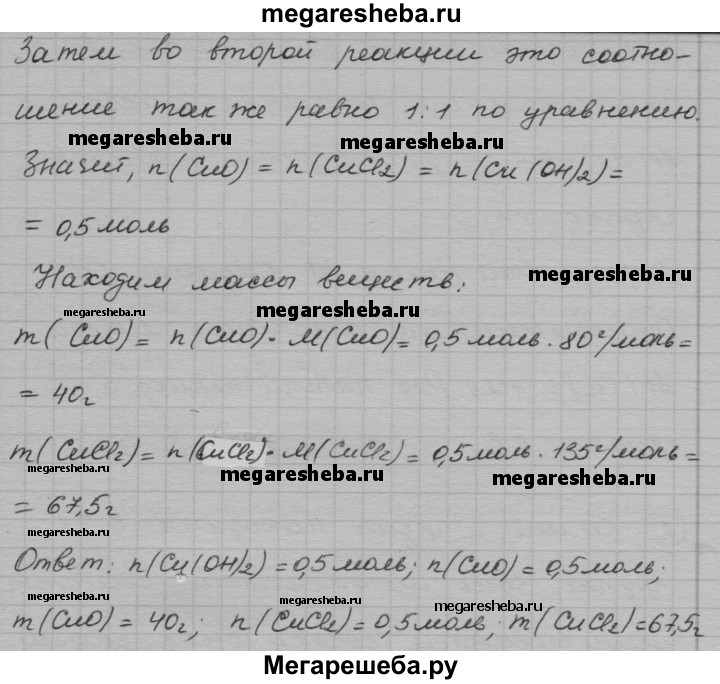 megaresheba.ru
Затем во второй реакции это соотно-
шение так же равно 1:1 по уравнению.
megaresheba.ru megaresheba.ru
Значит, n(CuO) = n(CuCl2) = n(Cu(OH)2) =
= 0,5 моль
Находим массы веществ: megaresheba.ru
megaresheba.ru megaresheba.ru
m(CuO) = n(CuO)· M(CuO) = 0,5 моль · 80 г/моль =
= 40 г
m(CuCl2) = n(CuCl2)· M(CuCl2) = 0,5 моль · 135 г/моль =
megaresheba.ru megaresheba.ru megaresheba.ru
= 67,5 г
megaresheba.ru
Ответ: n(Cu(OH)2) = 0,5 моль; n(CuO) = 0,5 моль;
megaresheba.ru megaresheba.ru megaresheba.ru
m(CuO) = 40 г; n(CuCl2) = 0,5 моль; m(CuCl2) = 67,5 г
Мегарешеба.ру